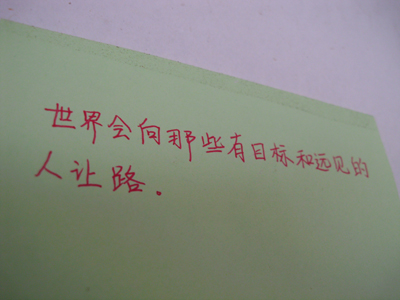 世界会向那些有目标和远见的
人让路.